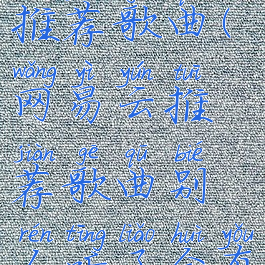 推荐歌曲(
wǎng yì yún tuī
网易云推
jiàn gē qǔ bié
荐歌曲别
rén tīng liǎo huì yǒu
人听了会有